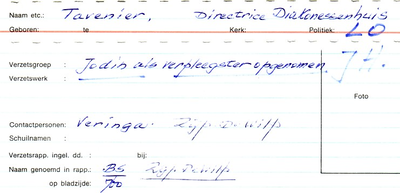 Naam etc.: Tavenier, Directrice Diakonessenhuis
Geboren: te Kerk: Politiek: LO
Verzetsgroep : Jodin als verpleegster opgenomen JH.
Verzetswerk :
Foto
Contactpersonen: Veringa
Schuilnamen :
Verzetsrapp. ingel. dd. : bij:
Naam genoemd in rapp.: BS
op bladzijde: 700